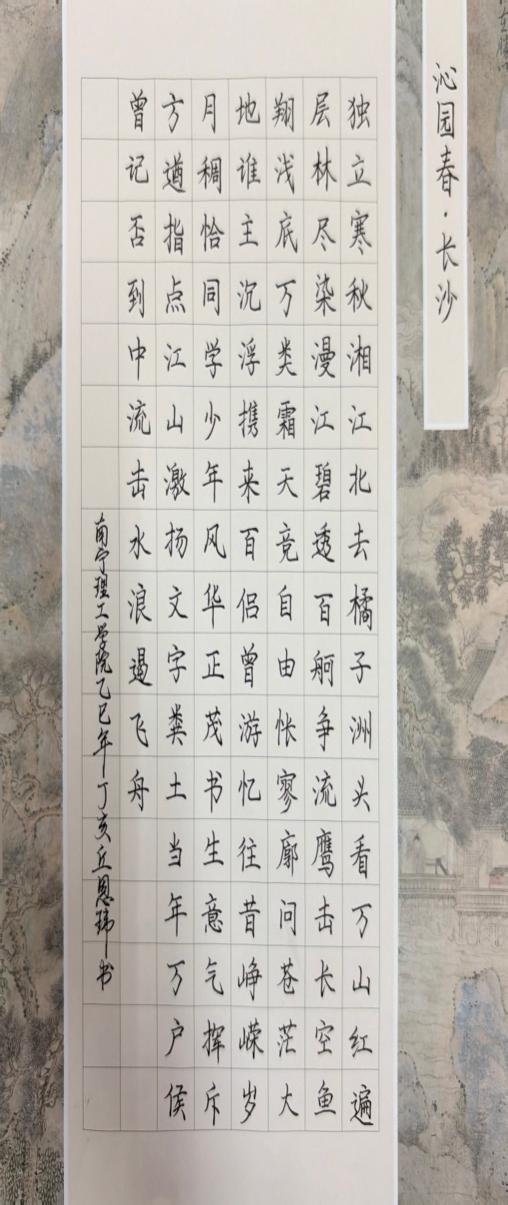 沁园春·长沙
独立寒秋湘江北去橘子洲头看万山红遍
层林尽染漫江碧透百舸争流鹰击长空鱼
翔浅底万类霜天竞自由怅寥廓问苍茫大
地谁主沉浮携来百侣曾游忆往昔峥嵘岁
月稠恰同学少年风华正茂书生意气挥斥
方遒指点江山激扬文字粪土当年万户侯
曾记否到中流击水浪遏飞舟
南宁理工学院乙巳年丁亥丘恩玮书